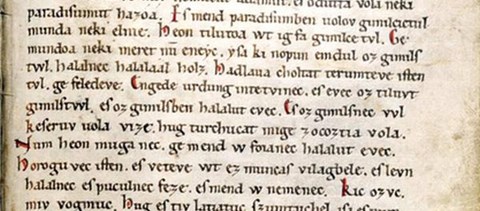 es odutta vola neki
paradisumut hazoa. Es mend paradisumben uolov gimilcictul
munda neki elnie. Heon tilutoa wt ig fa gimilce tvl. Ge
mundoa neki meret nu̅ eneyc. ysa ki nopun emdul oz gimils
twl. halalnec halalaal holz. Hadlaua choltat terumteve isten
tvl. ge feledeve. Engede urdung intetvinec. es evec oz tiluvt
gimilstvvl. es oz gimilsben halalut evec. Es oz gimilsnec vvl
keseruv uola vize. hug turchucat mige zocoztia vola.
Num heon muga nec. ge mend w foianec halalut evec.
Horogu vec isten. es veteve wt ez muncas vilagbele. es levn
halalnec es puculnec feze. es mend w nemenec. Kic ozvc.
miv vogmuc. Hug es tiv latiatuv szumtuchel. isa es num